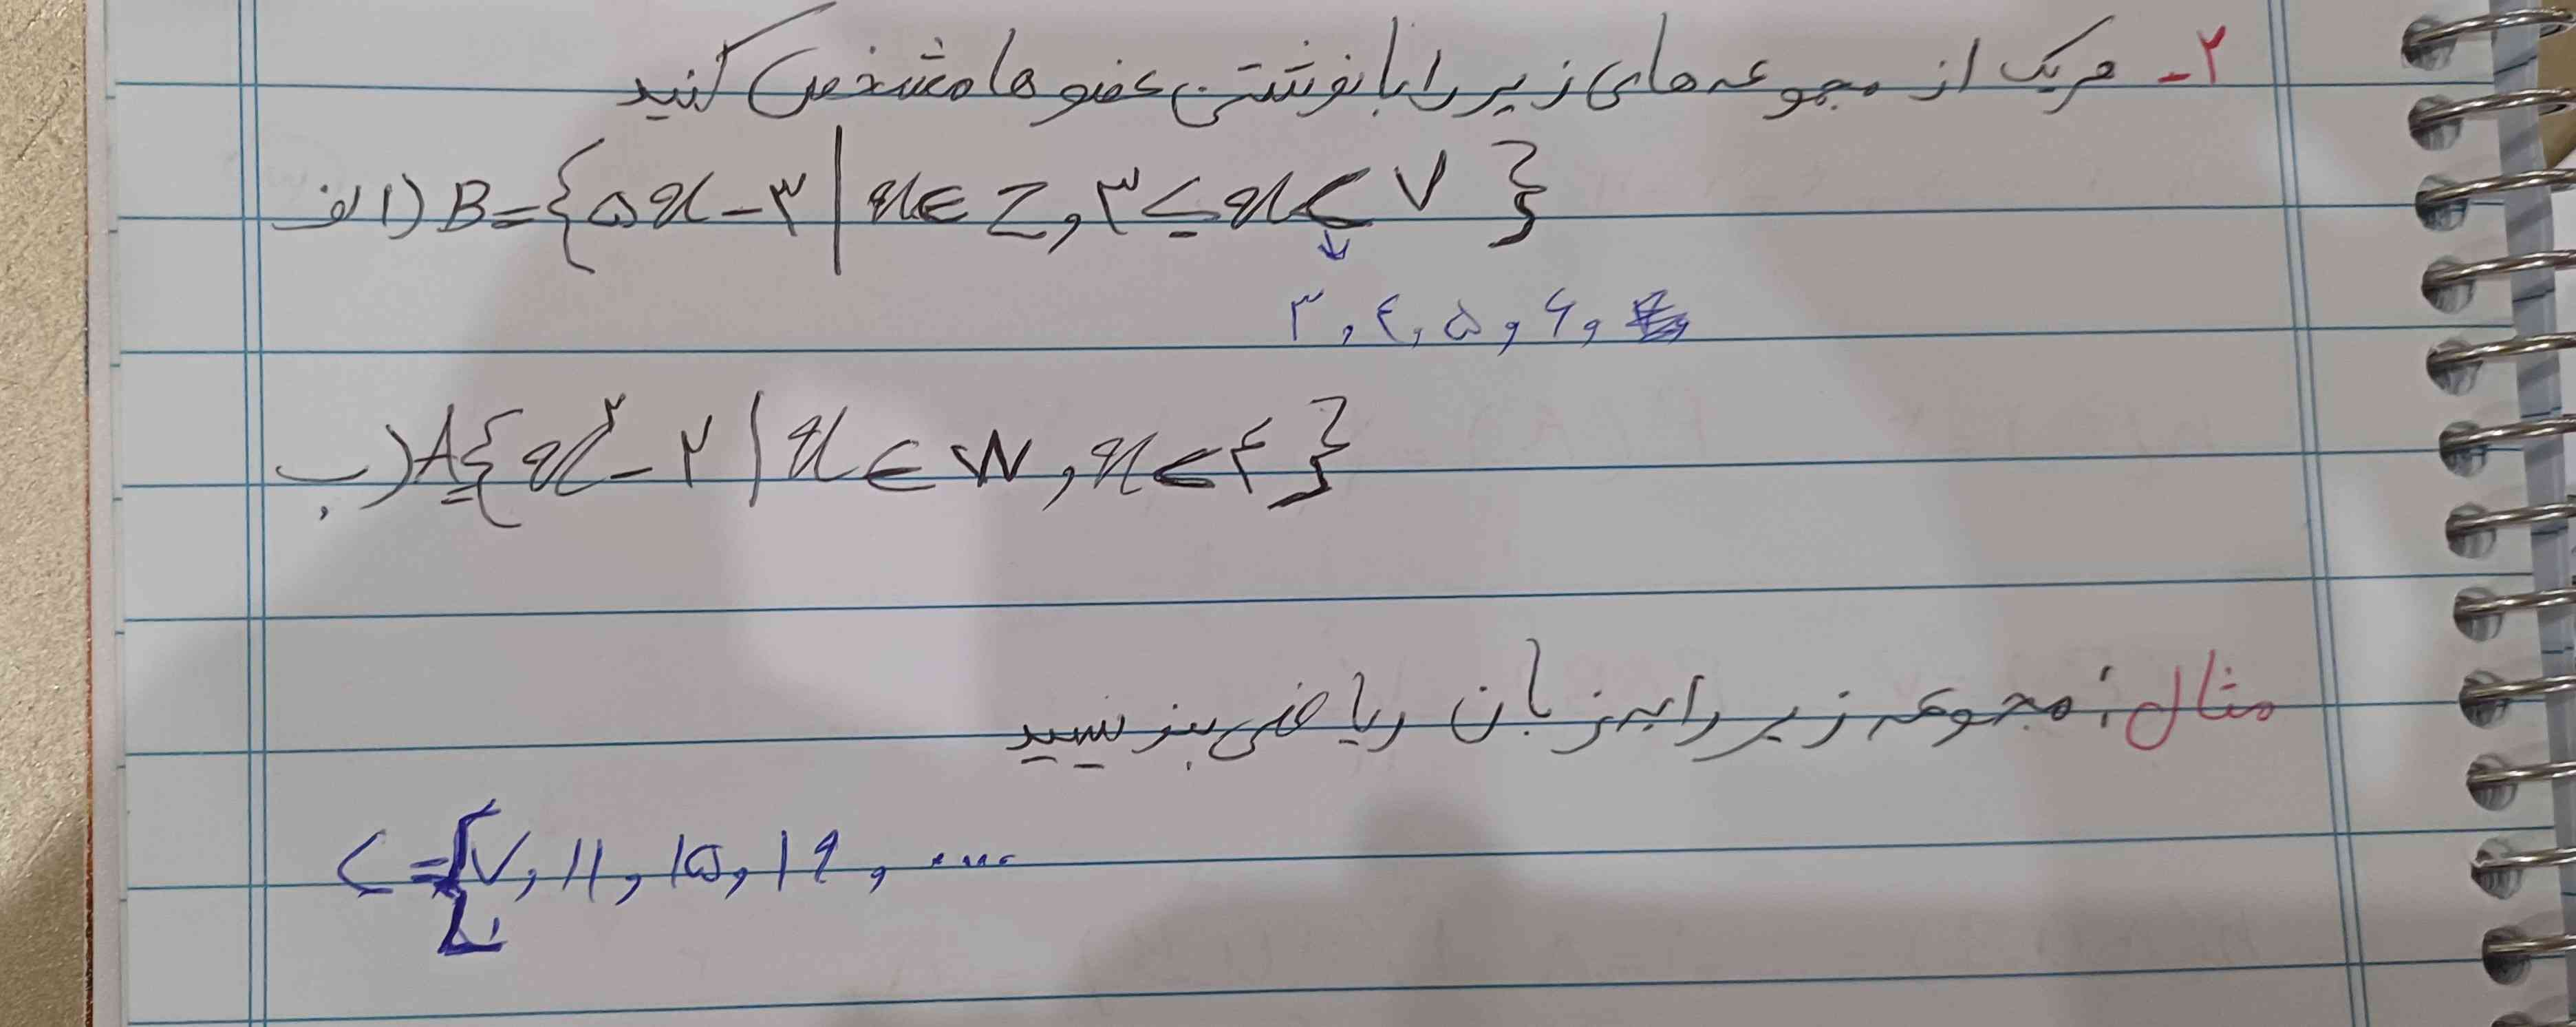 ۲- هریک از مجموعه های زیر را با نوشتن عضو ها مشخص کنید
الف) B={۵x-۳|x∈Z, ۳≤x<۷}
۳, ۴, ۵, ۶,
ب) A={x²-۲|x∈W, x<۴}
مثال: مجموعه زیر را به زبان ریاضی بنویسید
C={۷, ۱۱, ۱۵, ۱۹, ....